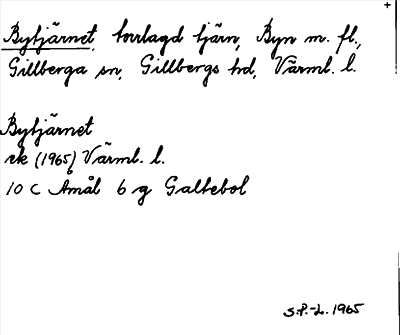 Bytjärnet, torrlagd tjärn, Byn m. fl.,
Gillberga sn, Gillbergs hd, Värml. l.
Bytjärnet
ek (1965) Värml. l.
10 C Åmål 6 g Galtebol
S.P.-L. 1965